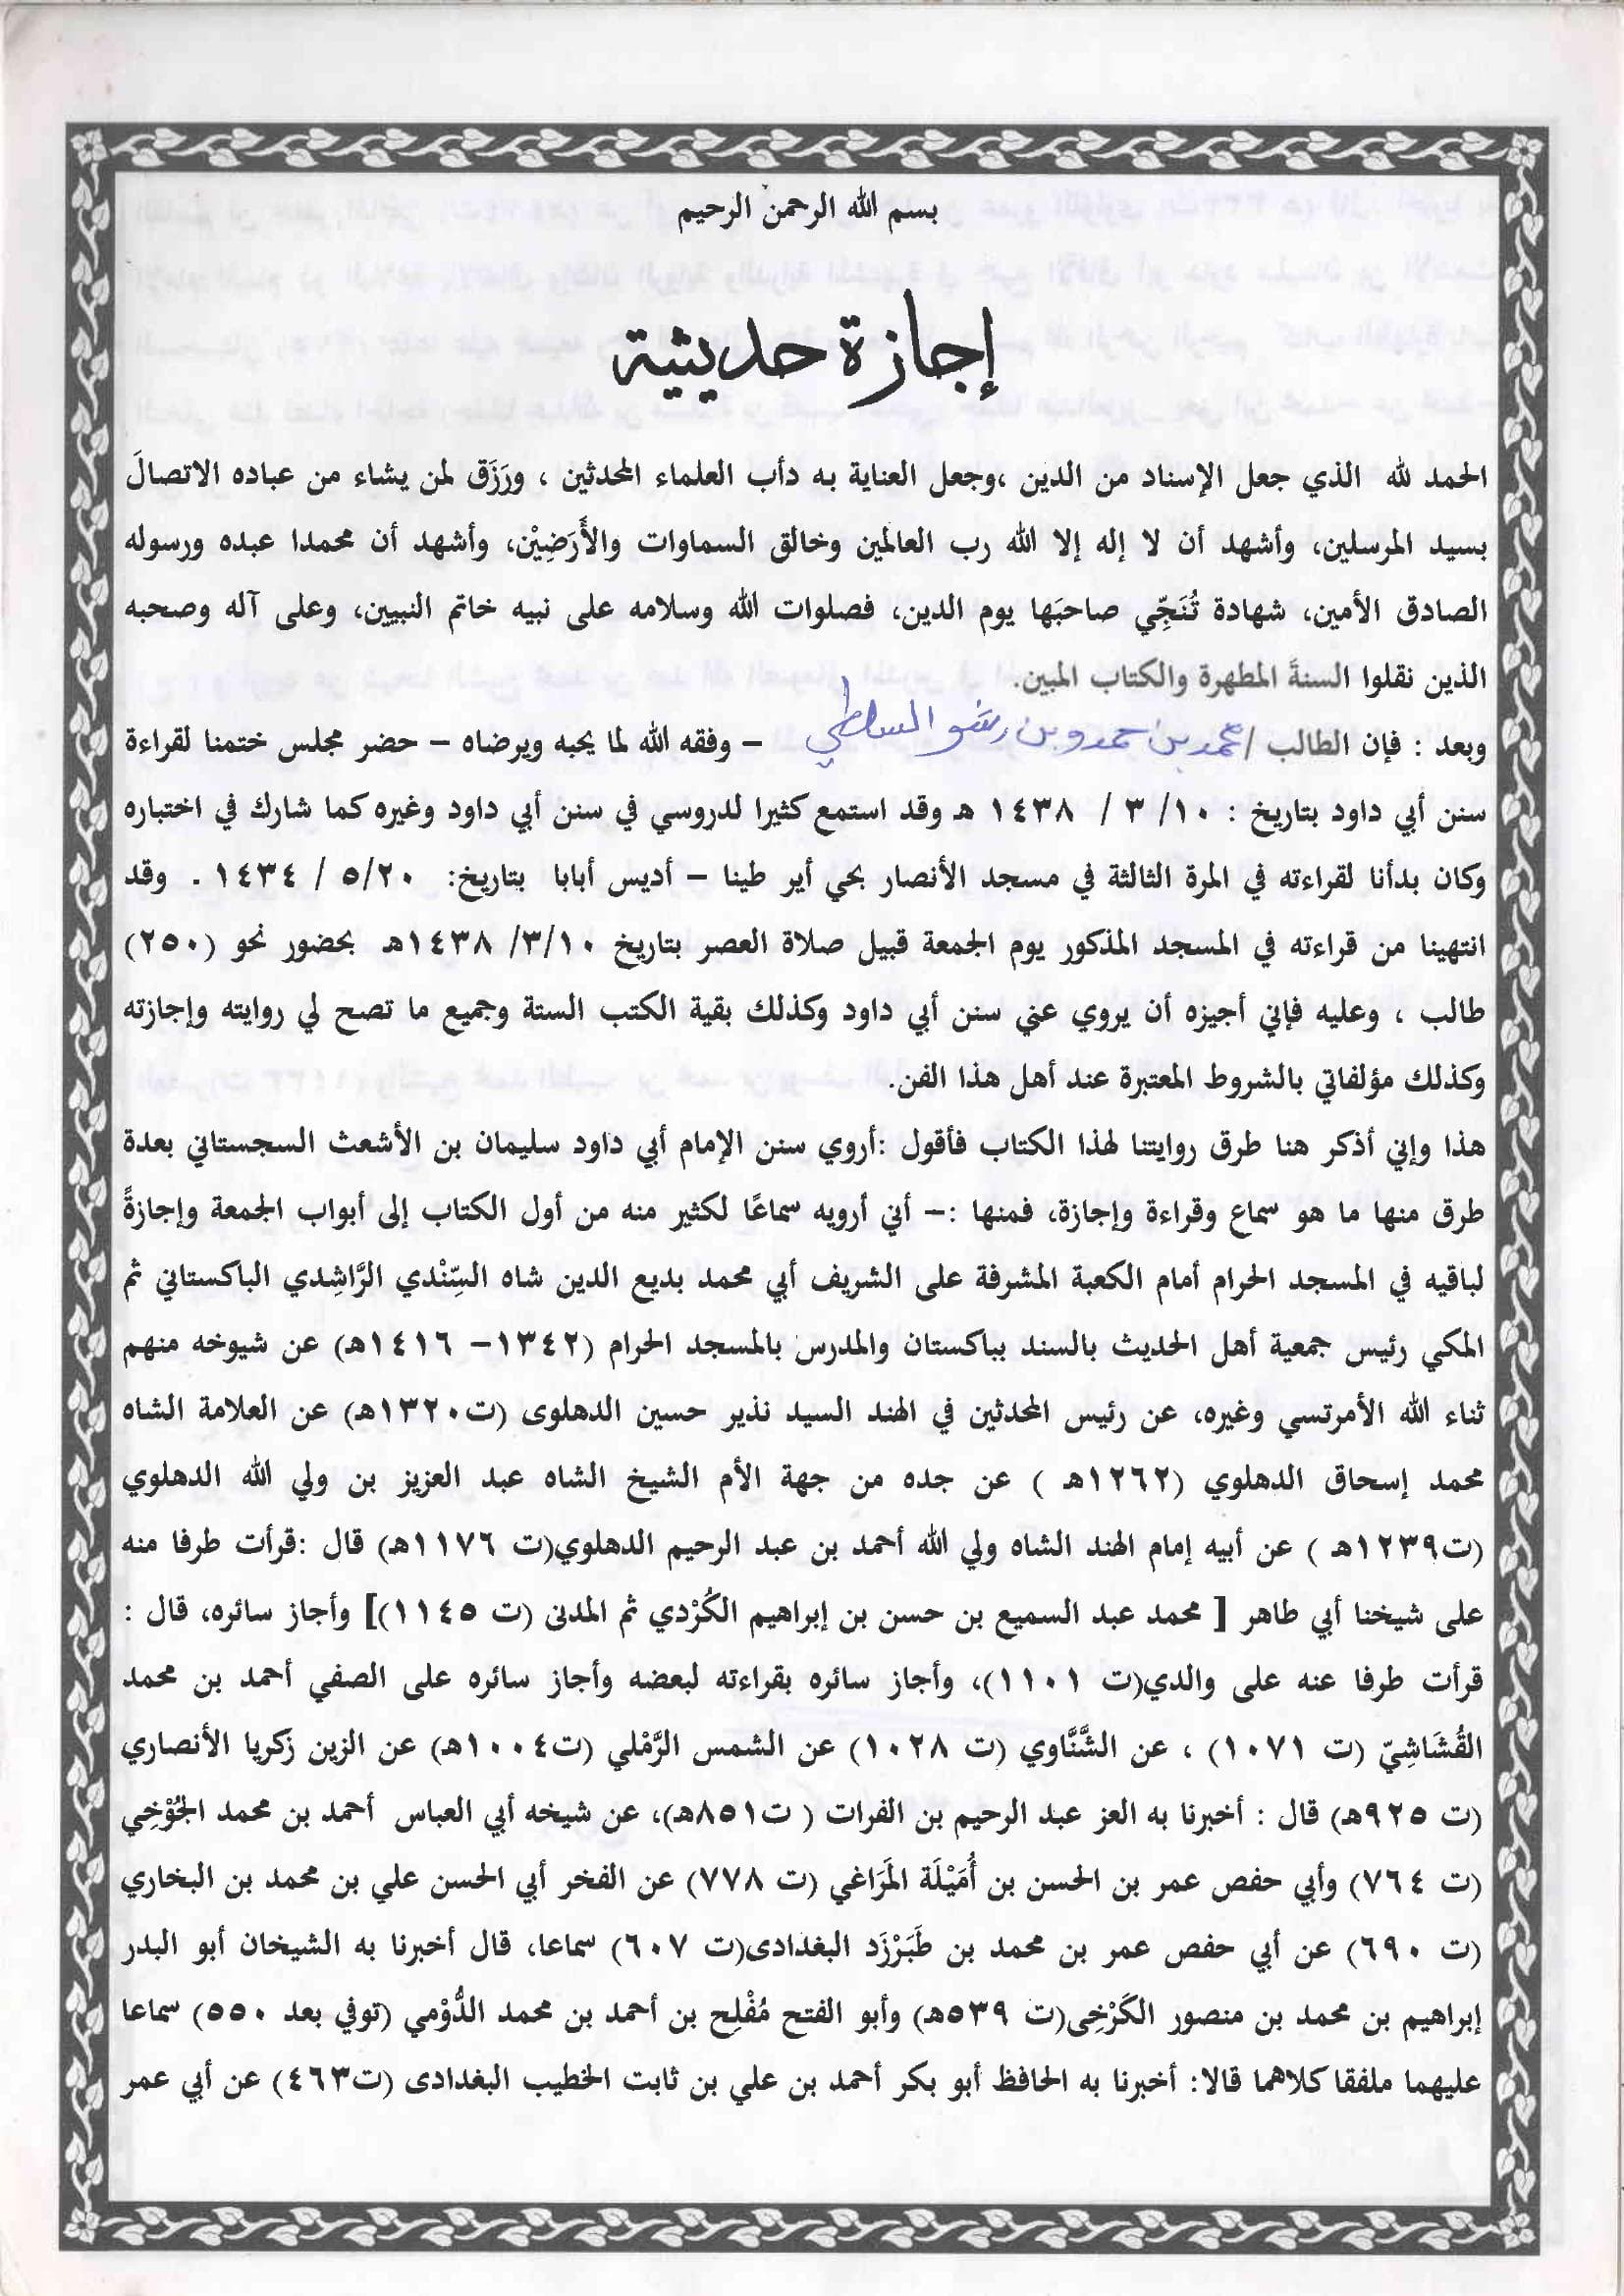 بسم الله الرحمن الرحيم
إجازة حديثية
الحمد لله الذي جعل الإسناد من الدين ،وجعل العناية به دأب العلماء المحدثين ، ورَزَق لمن يشاء من عباده الاتصالَ
بسيد المرسلين، وأشهد أن لا إله إلا الله رب العالمين وخالق السماوات والأَرَضِيْن، وأشهد أن محمدا عبده ورسوله
الصادق الأمين، شهادة تُنَجِّي صاحبَها يوم الدين، فصلوات الله وسلامه على نبيه خاتم النبيين، وعلى آله وصحبه
الذين نقلوا السنةَ المطهرة والكتاب المبين.
وبعد : فإن الطالب / محمد بن حمدو بن السلطي – وفقه الله لما يحبه ويرضاه – حضر مجلس ختمنا لقراءة
سنن أبي داود بتاريخ : ١٠/ ٣ / ١٤٣٨ هـ وقد استمع كثيرا لدروسي في سنن أبي داود وغيره كما شارك في اختباره
وكان بدأنا لقراءته في المرة الثالثة في مسجد الأنصار بحي أير طينا – أديس أبابا بتاريخ: ٥/٢٠ / ١٤٣٤ . وقد
انتهينا من قراءته في المسجد المذكور يوم الجمعة قبيل صلاة العصر بتاريخ ٣/١٠/ ١٤٣٨هـ بحضور نحو (٢٥٠)
طالب ، وعليه فإني أجيزه أن يروي عني سنن أبي داود وكذلك بقية الكتب الستة وجميع ما تصح لي روايته وإجازته
وكذلك مؤلفاتي بالشروط المعتبرة عند أهل هذا الفن.
هذا وإني أذكر هنا طرق روايتنا لهذا الكتاب فأقول :أروي سنن الإمام أبي داود سليمان بن الأشعث السجستاني بعدة
طرق منها ما هو سماع وقراءة وإجازة، فمنها :– أني أرويه سماعًا لكثير منه من أول الكتاب إلى أبواب الجمعة وإجازةً
لباقيه في المسجد الحرام أمام الكعبة المشرفة على الشريف أبي محمد بديع الدين شاه السِّنْدي الرَّاشِدي الباكستاني ثم
المكي رئيس جمعية أهل الحديث بالسند بباكستان والمدرس بالمسجد الحرام (١٣٤٢– ١٤١٦هـ) عن شيوخه منهم
ثناء الله الأمرتسي وغيره، عن رئيس المحدثين في الهند السيد نذير حسين الدهلوى (ت١٣٢٠هـ) عن العلامة الشاه
محمد إسحاق الدهلوي (١٢٦٢هـ ) عن جده من جهة الأم الشيخ الشاه عبد العزيز بن ولي الله الدهلوي
(ت١٢٣٩هـ ) عن أبيه إمام الهند الشاه ولي الله أحمد بن عبد الرحيم الدهلوي(ت ١١٧٦هـ) قال :قرأت طرفا منه
على شيخنا أبي طاهر [ محمد عبد السميع بن حسن بن إبراهيم الكُرْدي ثم المدنى (ت ١١٤٥)] وأجاز سائره، قال :
قرأت طرفا عنه على والدي(ت ١١٠١)، وأجاز سائره بقراءته لبعضه وأجاز سائره على الصفي أحمد بن محمد
القُشَاشِيّ (ت ١٠٧١) ، عن الشَّنَّاوي (ت ١٠٢٨) عن الشمس الرَّمْلي (ت١٠٠٤هـ) عن الزين زكريا الأنصاري
(ت ٩٢٥هـ) قال : أخبرنا به العز عبد الرحيم بن الفرات ( ت٨٥١هـ)، عن شيخه أبي العباس أحمد بن محمد الجُوْخِي
(ت ٧٦٤) وأبي حفص عمر بن الحسن بن أُمَيْلَة المَرَاغي (ت ٧٧٨) عن الفخر أبي الحسن علي بن محمد بن البخاري
(ت ٦٩٠) عن أبي حفص عمر بن محمد بن طَبَرْزَد البغدادى(ت ٦٠٧) سماعا، قال أخبرنا به الشيخان أبو البدر
إبراهيم بن محمد بن منصور الكَرْخِى(ت ٥٣٩هـ) وأبو الفتح مُفْلِح بن أحمد بن محمد الدُّوْمي (توفي بعد ٥٥٠) سماعا
عليهما ملفقا كلاهما قالا: أخبرنا به الحافظ أبو بكر أحمد بن علي بن ثابت الخطيب البغدادى (ت٤٦٣) عن أبي عمر